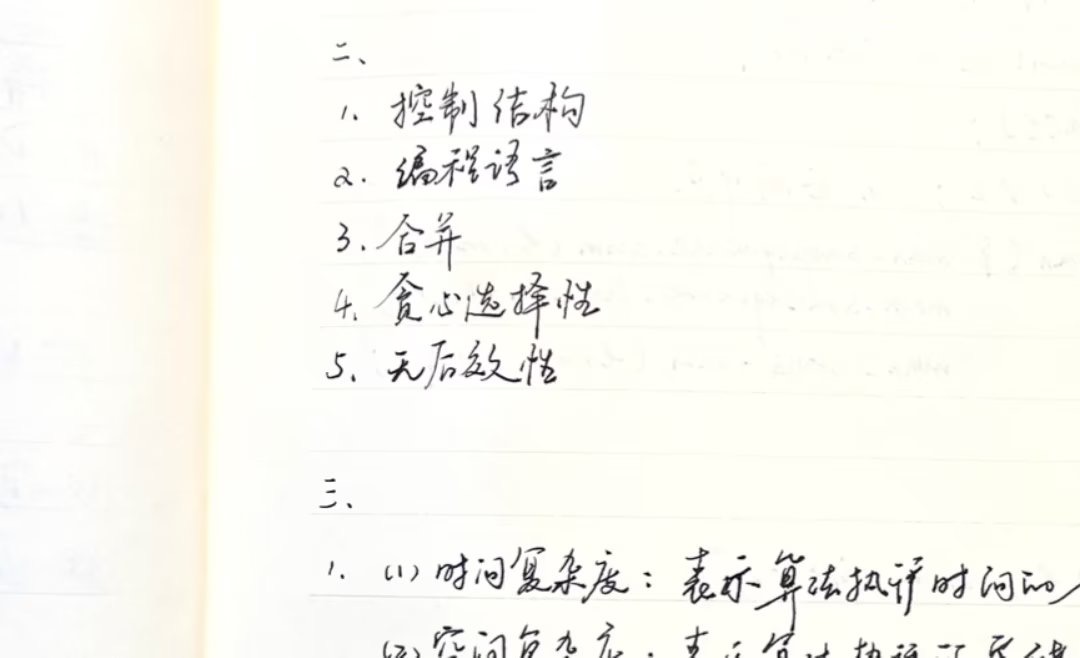 二、
1. 控制结构
2. 编程语言
3. 合并
4. 贪心选择性
5. 无后效性
三、
1. (1) 时间复杂度：表示算法执行时间的
(2) 空间复杂度：表示算法执行所需